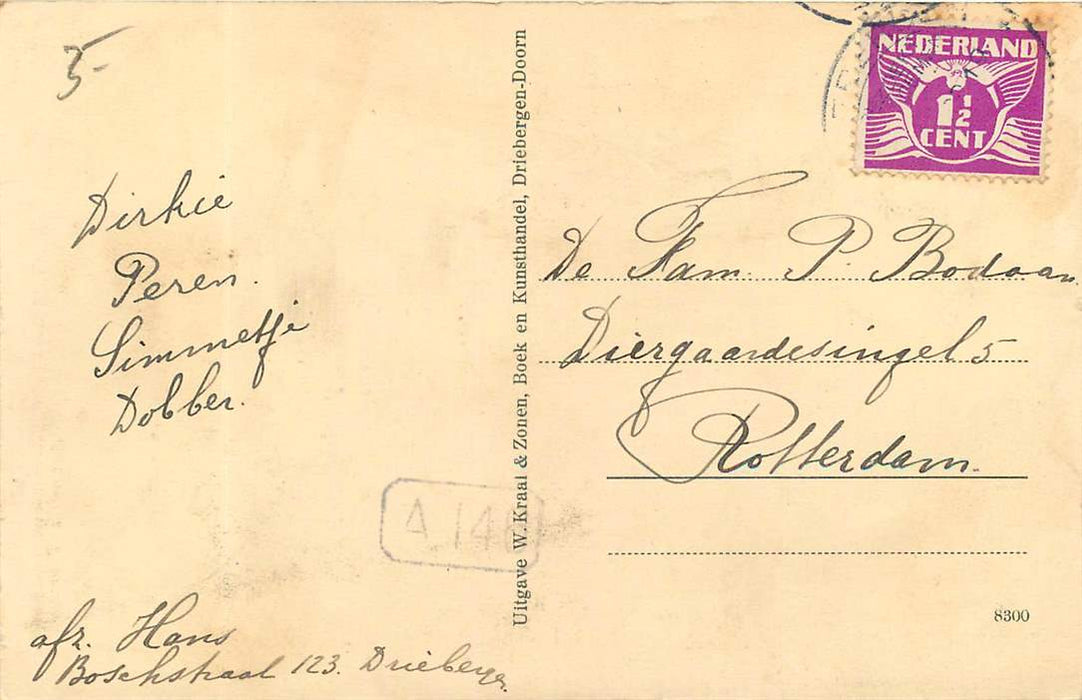 5-
NEDERLAND
1½
CENT
Dirkie
Peren.
Simmetje
Dobber.
De Fam. P. Bodaan
Diergaardesingel 5
Rotterdam.
Uitgave W. Kraal & Zonen, Boek en Kunsthandel, Driebergen-Doorn
A 146
8300
afz. Hans
Boschstraat 123. Drieberge